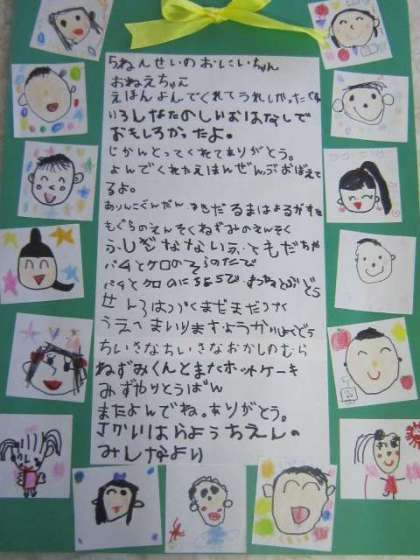 5ねんせいのおにいちゃん
おねえちゃん
えほんよんでくれてうれしかったです
いろんなたのしいおはなしで
おもしろかったよ。
じかんとってくれてありがとう。
よんでくれたえほんぜんぶおぼえて
るよ。
ありんこぐんだん ゆきだるまはよるがすき
もぐらのえんそくねずみのえんそく
ふしぎなないふ ともだちや
バムとケロのそらのたび
バムとケロのにちようび
せんろはつづくまだまだつづく
うえへまいりますようがしやどう
ちいさなちいさなおかしのむら
ねずみくんとまたホットケーキ
みずやりとうばん
またよんでね。ありがとう。
さかいはらようちえんの
みんなより